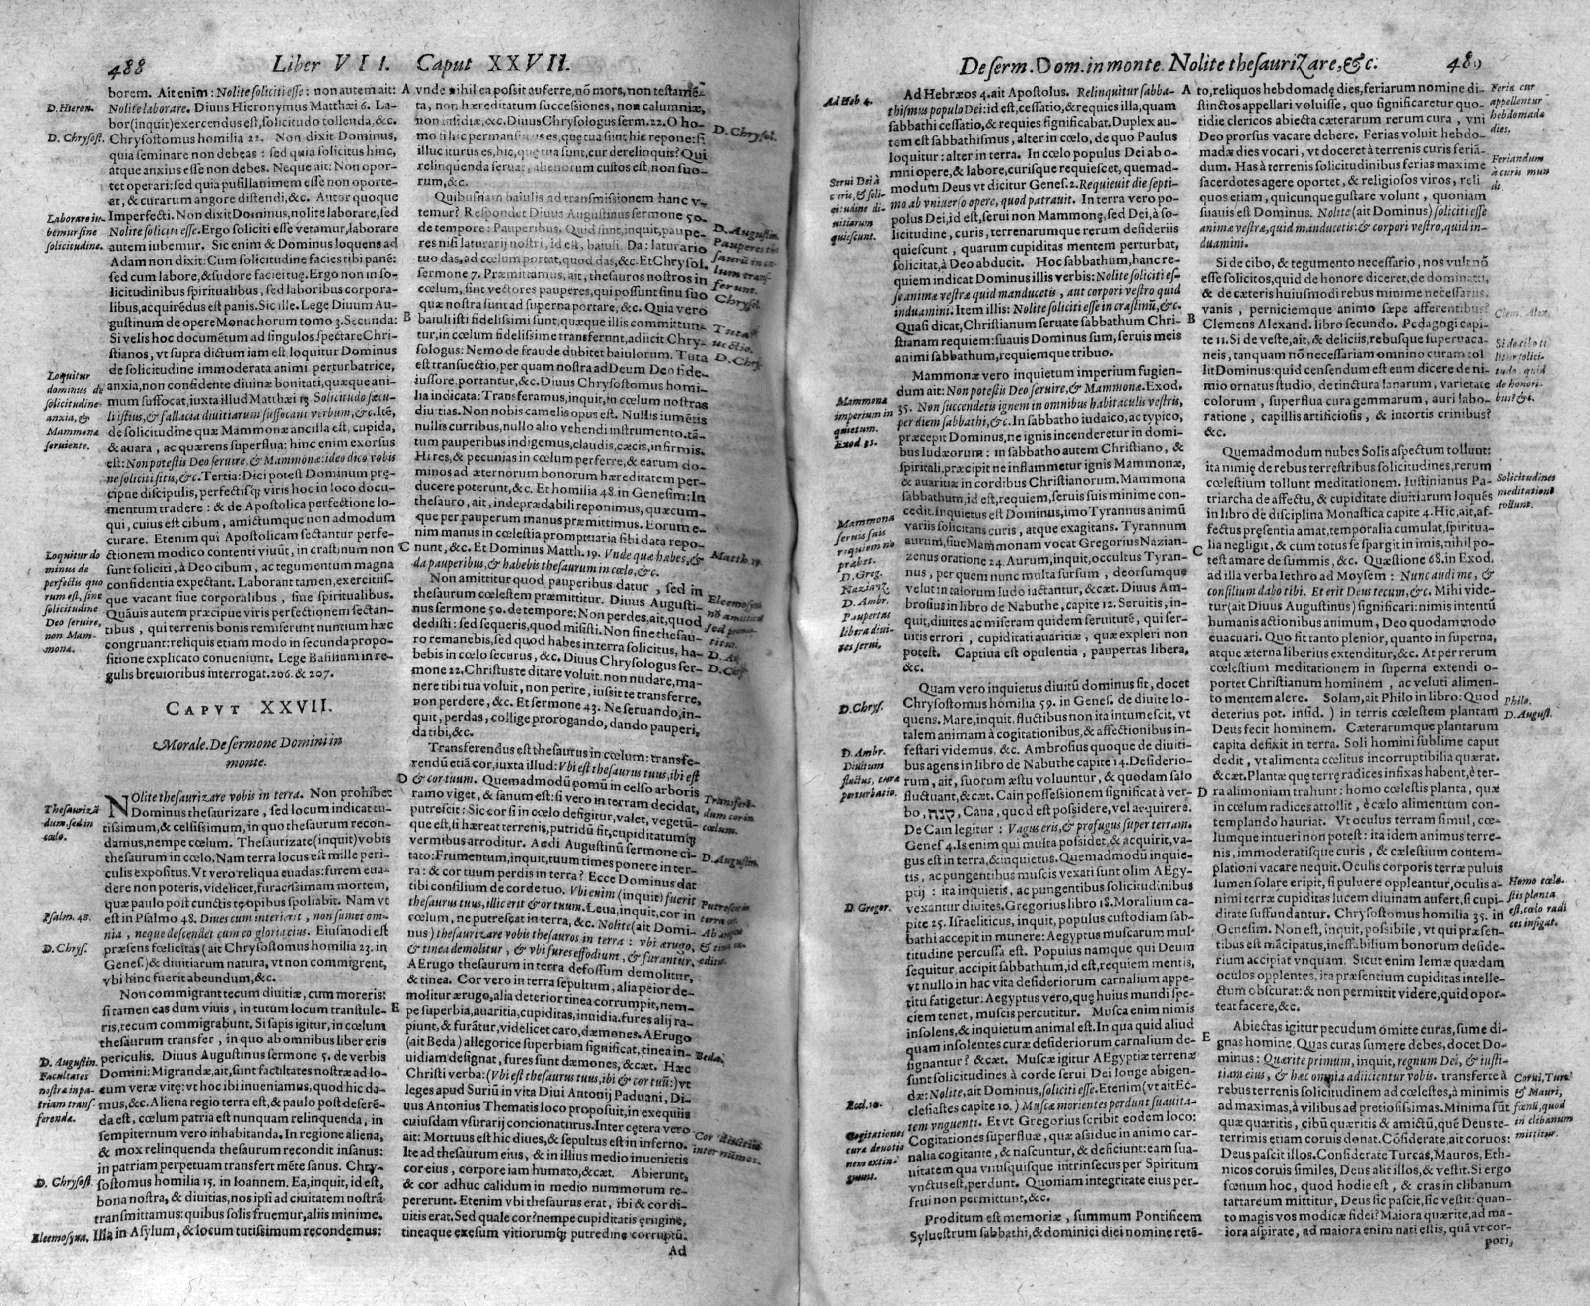 488
Liber VII. Caput XXVII.
borem. Ait enim: Nolite soliciti esse: non autem ait:
D. Hieron.
Nolite laborare. Diuus Hieronymus Matthæi 6. La-
bor (inquit) exercendus est, solicitudo tollenda, &c.
D. Chrysost.
Chrysostomus homilia 22. Non dixit Dominus,
quia seminare non debeas: sed quia solicitus hinc,
atque anxius esse non debes. Neque ait: Non opor-
tet operari: sed quia pusillanimem esse non oporte-
at, & curarum angore distendi, &c. Autor quoque
Laborare iu-
bemur sine
solicitudine.
Imperfecti. Non dixit Dominus, nolite laborare, sed
Nolite soliciti esse. Ergo soliciti esse vetamur, laborare
autem iubemur. Sic enim & Dominus loquens ad
Adam non dixit: Cum solicitudine facies tibi panē:
sed cum labore, & sudore faciei tuę. Ergo non in so-
licitudinibus spiritualibus, sed laboribus corpora-
libus, acquirēdus est panis. Sic ille. Lege Diuum Au-
gustinum de opere Monachorum tomo 3. Secunda:
Si velis hoc documētum ad singulos spectare Chri-
stianos, vt supra dictum iam est, loquitur Dominus
Loquitur
dominus de
solicitudine
anxia, &
Mammonæ
seruiente.
de solicitudine immoderata animi perturbatrice,
anxia, non confidente diuinæ bonitati, quæque ani-
mum suffocat, iuxta illud Matthæi 13. Solicitudo sæcu-
li istius, & fallacia diuitiarum suffocant verbum, &c. Itē,
de solicitudine quæ Mammonæ ancilla est, cupida,
& auara, ac quærens superflua: hinc enim exorsus
est: Non potestis Deo seruire, & Mammonæ: ideo dico vobis
ne soliciti sitis, &c. Tertia: Dici potest Dominum prę-
cipue discipulis, perfectisq; viris hoc in loco docu-
mentum tradere: & de Apostolica perfectione lo-
qui, cuius est cibum, amictumque non admodum
curare. Etenim qui Apostolicam sectantur perfe-
Loquitur do
minus de
perfectis quo
rum est, sine
solicitudine
Deo seruire,
non Mam-
monæ.
ctionem modico contenti viuūt, in crastinum non
sunt soliciti, à Deo cibum, ac tegumentum magna
confidentia expectant. Laborant tamen, exercitiis-
que vacant siue corporalibus, siue spiritualibus.
Quāuis autem præcipue viris perfectionem sectan-
tibus, qui terrenis bonis remiserunt nuntium hæc
congruant: reliquis etiam modo in secunda propo-
sitione explicato conueniunt. Lege Basilium in re-
gulis breuioribus interrogat. 206. & 207.
CAPVT XXVII.
Morale. De sermone Domini in
monte.
Thesauriza
dum, sed in
cælo.
NOlite thesaurizare vobis in terra. Non prohibet
Dominus thesaurizare, sed locum indicat tu-
tissimum, & celsissimum, in quo thesaurum recon-
damus, nempe cœlum. Thesaurizate (inquit) vobis
thesaurum in cœlo. Nam terra locus est mille peri-
culis expositus. Vt vero reliqua euadas: furem eua-
dere non poteris, videlicet, furacissimam mortem,
quæ paulo post cunctis te opibus spoliabit. Nam vt
Psalm. 48.
est in Psalmo 48. Diues cum interierit, non sumet om-
nia, neque descendet cum eo gloria eius. Eiusmodi est
D. Chrys.
præsens fœlicitas (ait Chrysostomus homilia 23. in
Genes.) & diuitiarum natura, vt non commigrent,
vbi hinc fuerit abeundum, &c.
Non commigrant tecum diuitiæ, cum moreris:
si tamen eas dum viuis, in tutum locum transtule-
ris, tecum commigrabunt. Si sapis igitur, in cœlum
thesaurum transfer, in quo ab omnibus liber eris
D. Augustin.
Facultates
nostræ in pa-
triam trans-
ferendæ.
periculis. Diuus Augustinus sermone 5. de verbis
Domini: Migrandæ, ait, sunt facultates nostræ ad lo-
cum veræ vitę: vt hoc ibi inueniamus, quod hic da-
mus, &c. Aliena regio terra est, & paulo post deserē-
da est, cœlum patria est nunquam relinquenda, in
sempiternum vero inhabitanda. In regione aliena,
& mox relinquenda thesaurum recondit insanus:
in patriam perpetuam transfert mēte sanus. Chry-
D. Chrysost.
sostomus homilia 15. in Ioannem. Ea, inquit, id est,
bona nostra, & diuitias, nos ipsi ad ciuitatem nostrā
transmittamus: quibus solis fruemur, aliis minime.
Eleemosyna.
Illa in Asylum, & locum tutissimum recondemus:
A vnde nihil ea possit auferre, nō mors, non testamē-
ta, non hæreditatum successiones, non calumniæ,
non insidiæ, &c. Diuus Chrysologus serm. 22. O ho-
D. Chrysol.
mo si hic permansurus es, hic quę tua sunt repone: si
illuc iturus es, hic, quę tua sunt, cur derelinquis? Qui
relinquenda seruat, alienorum custos est, non suo-
rum, &c.
Quibusnam baiulis ad transmissionem hanc v-
temur? Respondet Diuus Augustinus sermone 50.
D. Augustin.
de tempore: Pauperibus. Quid sunt, inquit, paupe-
res nisi laturarij nostri, id est, baiuli. Da: laturario
tuo das, ad cœlum portat, quod das, &c. Et Chrysol.
Chrysol.
sermone 7. Præmittamus, ait, thesauros nostros in
cœlum, sint vectores pauperes, qui possunt sinu suo
quæ nostra sunt ad superna portare, &c. Quia vero
B baiuli isti fidelissimi sunt, quæque illis committun-
tur, in cœlum fidelissime transferunt, adiicit Chry-
sologus: Nemo de fraude dubitet baiulorum. Tuta
est transuectio, per quam nostra ad Deum Deo fide-
iussore, portantur, &c. Diuus Chrysostomus homi-
lia indicata: Transferamus, inquit, in cœlum nostras
diuitias. Non nobis camelis opus est. Nullis iumētis
nullis curribus, nullo alio vehendi instrumento, tā-
tum pauperibus indigemus, claudis, cæcis, infirmis.
Hi res, & pecunias in cœlum perferre, & earum do-
minos ad æternorum bonorum hæreditatem per-
ducere poterunt, &c. Et homilia 48. in Genesim: In
thesauro, ait, indeprædabili reponimus, quæcum-
que per pauperum manus præmittimus. Eorum e-
nim manus in cœlestia promptuaria sibi data repo-
C nunt, &c. Et Dominus Matth. 19. Vende quæ habes, &
Matth. 19
da pauperibus, & habebis thesaurum in cœlo, &c.
Non amittitur quod pauperibus datur, sed in
thesaurum cœlestem præmittitur. Diuus Augusti-
nus sermone 50. de tempore: Non perdes, ait, quod
dedisti: sed sequeris, quod misisti. Non sine thesau-
ro remanebis, sed quod habes in terra solicitus, ha-
bebis in cœlo securus, &c. Diuus Chrysologus ser-
mone 22. Christus te ditare voluit non nudare, ma-
nere tibi tua voluit, non perire, iussit te transferre,
non perdere, &c. Et sermone 43. Ne seruando, in-
quit, perdas, collige prorogando, dando pauperi,
da tibi, &c.
Transferendus est thesaurus in cœlum: transfe-
rendū etiā cor, iuxta illud: Vbi est thesaurus tuus, ibi est
D & cor tuum. Quemadmodū pomū in celso arboris
Transferē-
dum cor in
cœlum.
ramo viget, & sanum est: si vero in terram decidat,
putrescit: Sic cor si in cœlo defigitur, valet, vegetū-
que est, si hæreat terrenis, putridū fit, cupiditatumq;
vermibus arroditur. Aedi Augustinū sermone ci-
D. Augustin.
tato: Frumentum, inquit, tuum times ponere in ter-
ra: & cor tuum perdis in terra? Ecce Dominus dat
tibi consilium de corde tuo. Vbi enim (inquit) fuerit
thesaurus tuus, illic erit & cor tuum. Leua, inquit, cor in
cœlum, ne putrescat in terra, &c. Nolite (ait Domi-
nus) thesaurizare vobis thesauros in terra: vbi ærugo,
& tinea demolitur, & vbi fures effodiunt, & furantur.
AErugo thesaurum in terra defossum demolitur,
& tinea. Cor vero in terra sepultum, alia peior de-
E molitur ærugo, alia deterior tinea corrumpit, nem-
pe superbia, auaritia, cupiditas, inuidia. fures alij ra-
piunt, & furātur, videlicet caro, dæmones. AErugo
(ait Beda) allegorice superbiam significat, tinea in-
Beda.
uidiam designat, fures sunt dæmones, &cæt. Hæc
Christi verba: (Vbi est thesaurus tuus, ibi & cor tuū:) vt
leges apud Suriū in vita Diui Antonij Paduani, Di-
uus Antonius Thematis loco proposuit, in exequiis
cuiusdam vsurarij concionaturus. Inter cętera vero
ait: Mortuus est hic diues, & sepultus est in inferno.
Ite ad thesaurum eius, & in illius medio inuenietis
cor eius, corpore iam humato, &cæt. Abierunt,
& cor adhuc calidum in medio nummorum re-
pererunt. Etenim vbi thesaurus erat, ibi & cor di-
uitis erat. Sed quale cor? nempe cupiditatis ęrugine,
tineaque exesum vitiorumq; putredine corruptū.
Ad
De serm. Dom. in monte. Nolite thesaurizare, &c.
489
Ad Heb. 4.
Ad Hebræos 4. ait Apostolus. Relinquitur sabba-
thismus populo Dei: id est, cessatio, & requies illa, quam
sabbathi cessatio, & requies significabat. Duplex au-
tem est sabbathismus, alter in cœlo, de quo Paulus
loquitur: alter in terra. In cœlo populus Dei ab o-
mni opere, & labore, curisque requiescet, quemad-
modum Deus vt dicitur Genes. 2. Requieuit die septi-
mo ab vniuerso opere, quod patrauit. In terra vero po-
pulus Dei, id est, serui non Mammonę, sed Dei, à so-
licitudine, curis, terrenarumque rerum desideriis
quiescunt, quarum cupiditas mentem perturbat,
solicitat, à Deo abducit. Hoc sabbathum, hanc re-
quiem indicat Dominus illis verbis: Nolite soliciti es-
se animæ vestræ quid manducetis, aut corpori vestro quid
induamini. Item illis: Nolite soliciti esse in crastinū, &c.
Quasi dicat, Christianum seruate sabbathum Chri-
stianam requiem: suauis Dominus sum, seruis meis
animi sabbathum, requiemque tribuo.
Mammonæ vero inquietum imperium fugien-
dum ait: Non potestis Deo seruire, & Mammonæ. Exod.
Mammonæ
imperium in
quietum.
Exod 35.
35. Non succendetis ignem in omnibus habitaculis vestris,
per diem sabbathi, &c. In sabbatho iudaico, ac typico,
præcepit Dominus, ne ignis incenderetur in domi-
bus Iudæorum: in sabbatho autem Christiano, &
spirituali, præcipit ne inflammetur ignis Mammonæ,
& auaritiæ in cordibus Christianorum. Mammona
sabbathum, id est, requiem, seruis suis minime con-
cedit. Inquietus est Dominus, imo Tyrannus animū
variis solicitans curis, atque exagitans. Tyrannum
aurum, siue Mammonam vocat Gregorius Nazian-
zenus oratione 24. Aurum, inquit, occultus Tyran-
nus, per quem nunc multa sursum, deorsumque
velut in talorum ludo iactantur, &cæt. Diuus Am-
brosius in libro de Nabuthe, capite 12. Seruitis, in-
quit, diuites ac miseram quidem seruitutē, qui ser-
uitis errori, cupiditati auaritiæ, quæ expleri non
potest. Captiua est opulentia, paupertas libera,
&c.
Quam vero inquietus diuitū dominus sit, docet
D. Chrys.
Chrysostomus homilia 59. in Genes. de diuite lo-
quens. Mare, inquit, fluctibus non ita intumescit, vt
talem animam à cogitationibus, & affectionibus in-
festari videmus, &c. Ambrosius quoque de diuiti-
D. Ambr.
Diuitum
fluctus, cura
perturbatio.
bus agens in libro de Nabuthe capite 14. Desiderio-
rum, ait, suorum æstu voluuntur, & quodam salo
fluctuant, &cæt. Cain possessionem significat à ver-
bo, קנה, Cana, quod est possidere, vel acquirere.
De Cain legitur: Vagus eris, & profugus super terram.
Genes 4. Is enim qui multa possidet, & acquirit, va-
gus est in terra, & inquietus. Quemadmodū inquie-
tis, ac pungentibus muscis vexati sunt olim AEgy-
ptij: ita inquietis, ac pungentibus solicitudinibus
D. Gregor.
vexantur diuites. Gregorius libro 18. Moralium ca-
pite 25. Israeliticus, inquit, populus custodiam sab-
bathi accepit in munere: Aegyptus muscarum mul-
titudine percussa est. Populus namque qui Deum
sequitur, accipit sabbathum, id est, requiem mentis,
vt nullo in hac vita desideriorum carnalium appe-
titu fatigetur: Aegyptus vero, quę huius mundi spe-
ciem tenet, muscis percutitur. Musca enim nimis
insolens, & inquietum animal est. In qua quid aliud
quam insolentes curæ desideriorum carnalium de-
signantur? &cæt. Muscæ igitur AEgyptiæ terrenæ
sunt solicitudines à corde serui Dei longe abigen-
dæ: Nolite, ait Dominus, soliciti esse. Etenim (vt ait Ec-
Eccl. 10.
clesiastes capite 10.) Muscæ morientes perdunt suauita-
tem vnguenti. Et vt Gregorius scribit eodem loco:
Cogitationes
curæ deuotio
nem extin-
guunt.
Cogitationes superfluæ, quæ assidue in animo car-
nalia cogitante, & nascuntur, & deficiunt: eam sua-
uitatem qua vnusquisque intrinsecus per Spiritum
vnctus est, perdunt. Quoniam integritate eius per-
frui non permittunt, &c.
Proditum est memoriæ, summum Pontificem
Syluestrum sabbathi, & dominici diei nomine retē-
A to, reliquos hebdomadę dies, feriarum nomine di-
Feriæ cur
appellentur
hebdomadæ
dies.
stinctos appellari voluisse, quo significaretur quo-
tidie clericos abiecta cæterarum rerum cura, vni
Deo prorsus vacare debere. Ferias voluit hebdo-
madæ dies vocari, vt doceret à terrenis curis feriā-
Feriandum
à curis mun
di.
dum. Has à terrenis solicitudinibus ferias maxime
sacerdotes agere oportet, & religiosos viros, reli
quos etiam, quicunque gustare volunt, quoniam
suauis est Dominus. Nolite (ait Dominus) soliciti esse
animæ vestræ, quid manducetis: & corpori vestro, quid in-
duamini.
Si de cibo, & tegumento necessario, nos vult nō
esse solicitos, quid de honore diceret, de dominatu,
& de cæteris huiusmodi rebus minime necessariis,
vanis, perniciemque animo sæpe afferentibus?
Clem. Alex.
B Clemens Alexand. libro secundo. Pedagogi capi-
te 11. Si de veste, ait, & deliciis, rebusque superuaca-
neis, tanquam nō necessariam omnino curam tol
lit Dominus: quid censendum est eum dicere de ni-
mio ornatus studio, de tinctura lanarum, varietate
colorum, superflua cura gemmarum, auri labo-
ratione, capillis artificiosis, & intortis crinibus?
&c.
Quemadmodum nubes Solis aspectum tollunt:
ita nimię de rebus terrestribus solicitudines, rerum
Solicitudines
meditationē
tollunt.
cœlestium tollunt meditationem. Iustinianus Pa-
triarcha de affectu, & cupiditate diuitiarum loquēs
in libro de disciplina Monastica capite 4. Hic, ait, af-
fectus pręsentia amat, temporalia cumulat, spiritua-
C lia negligit, & cum totus se spargit in imis, nihil po-
test amare de summis, &c. Quæstione 68. in Exod.
ad illa verba Iethro ad Moysem: Nunc audi me, &
consilium dabo tibi. Et erit Deus tecum, &c. Mihi vide-
tur (ait Diuus Augustinus) significari: nimis intentū
humanis actionibus animum, Deo quodammodo
euacuari. Quo fit tanto plenior, quanto in superna,
atque æterna liberius extenditur, &c. At per rerum
cœlestium meditationem in superna extendi o-
portet Christianum hominem, ac veluti alimen-
to mentem alere. Solam, ait Philo in libro: Quod
Philo.
D. August.
deterius pot. insid.) in terris cœlestem plantam
Deus fecit hominem. Cæterarumque plantarum
capita defixit in terra. Soli homini sublime caput
dedit, vt alimenta cœlitus incorruptibilia quærat.
&cæt. Plantæ quę terrę radices infixas habent, è ter-
D ra alimoniam trahunt: homo cœlestis planta, quæ
in cœlum radices attollit, è cælo alimentum con-
templando hauriat. Vt oculus terram simul, cœ-
lumque intueri non potest: ita idem animus terre-
nis, immoderatisque curis, & cælestium contem-
plationi vacare nequit. Oculis corporis puluis
lumen solare eripit, si puluere oppleantur, oculis a-
nimi terræ cupiditas lucem diuinam aufert, si cupi-
Homo cœle-
stis planta
est, cœlo radi
ces insigat.
ditate suffundantur. Chrysostomus homilia 35. in
Genesim. Non est, inquit, possibile, vt qui præsen-
tibus est mācipatus, ineffabilium bonorum deside-
rium accipiat vnquam. Sicut enim lemæ quædam
oculos opplentes, ita præsentium cupiditas intelle-
ctum obscurat: & non permittit videre, quid opor-
teat facere, &c.
E Abiectas igitur pecudum omitte curas, sume di-
gnas homine. Quas curas sumere debes, docet Do-
minus: Quærite primum, inquit, regnum Dei, & iusti-
tiam eius, & hæc omnia adiicientur vobis. transferte à
Corui, Turcæ
& Mauri,
fœnū, quod
in clibanum
mittitur.
rebus terrenis solicitudinem ad cœlestes, à minimis
ad maximas, à vilibus ad pretiosissimas. Minima sūt
quæ quæritis, cibū quæritis & amictū, quē Deus te-
terrimis etiam coruis donat. Cōsiderate, ait coruos:
Deus pascit illos. Considerate Turcas, Mauros, Eth-
nicos coruis similes, Deus alit illos, & vestit. Si ergo
fœnum hoc, quod hodie est, & cras in clibanum
tartareum mittitur, Deus sic pascit, sic vestit: quan-
to magis vos modicæ fidei? Maiora quærite, ad ma-
iora aspirate, ad maiora enim nati estis, quā vt cor-
pori,